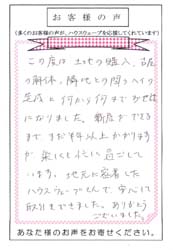 お客様の声
(多くのお客様の声が、ハウスウェーブを応援してくれています)
この度は土地の購入、古屋
の解体、隣地との間のヘイの
完成と何から何までお世話
になりました。新居ができる
まで まだ半年以上かかりますが
楽しくも忙しく過ごして
います。地元に密着した
ハウスウェーブさんで、安心して
取引きできました。ありがとう
ございました。
あなた様のお声をお寄せください。